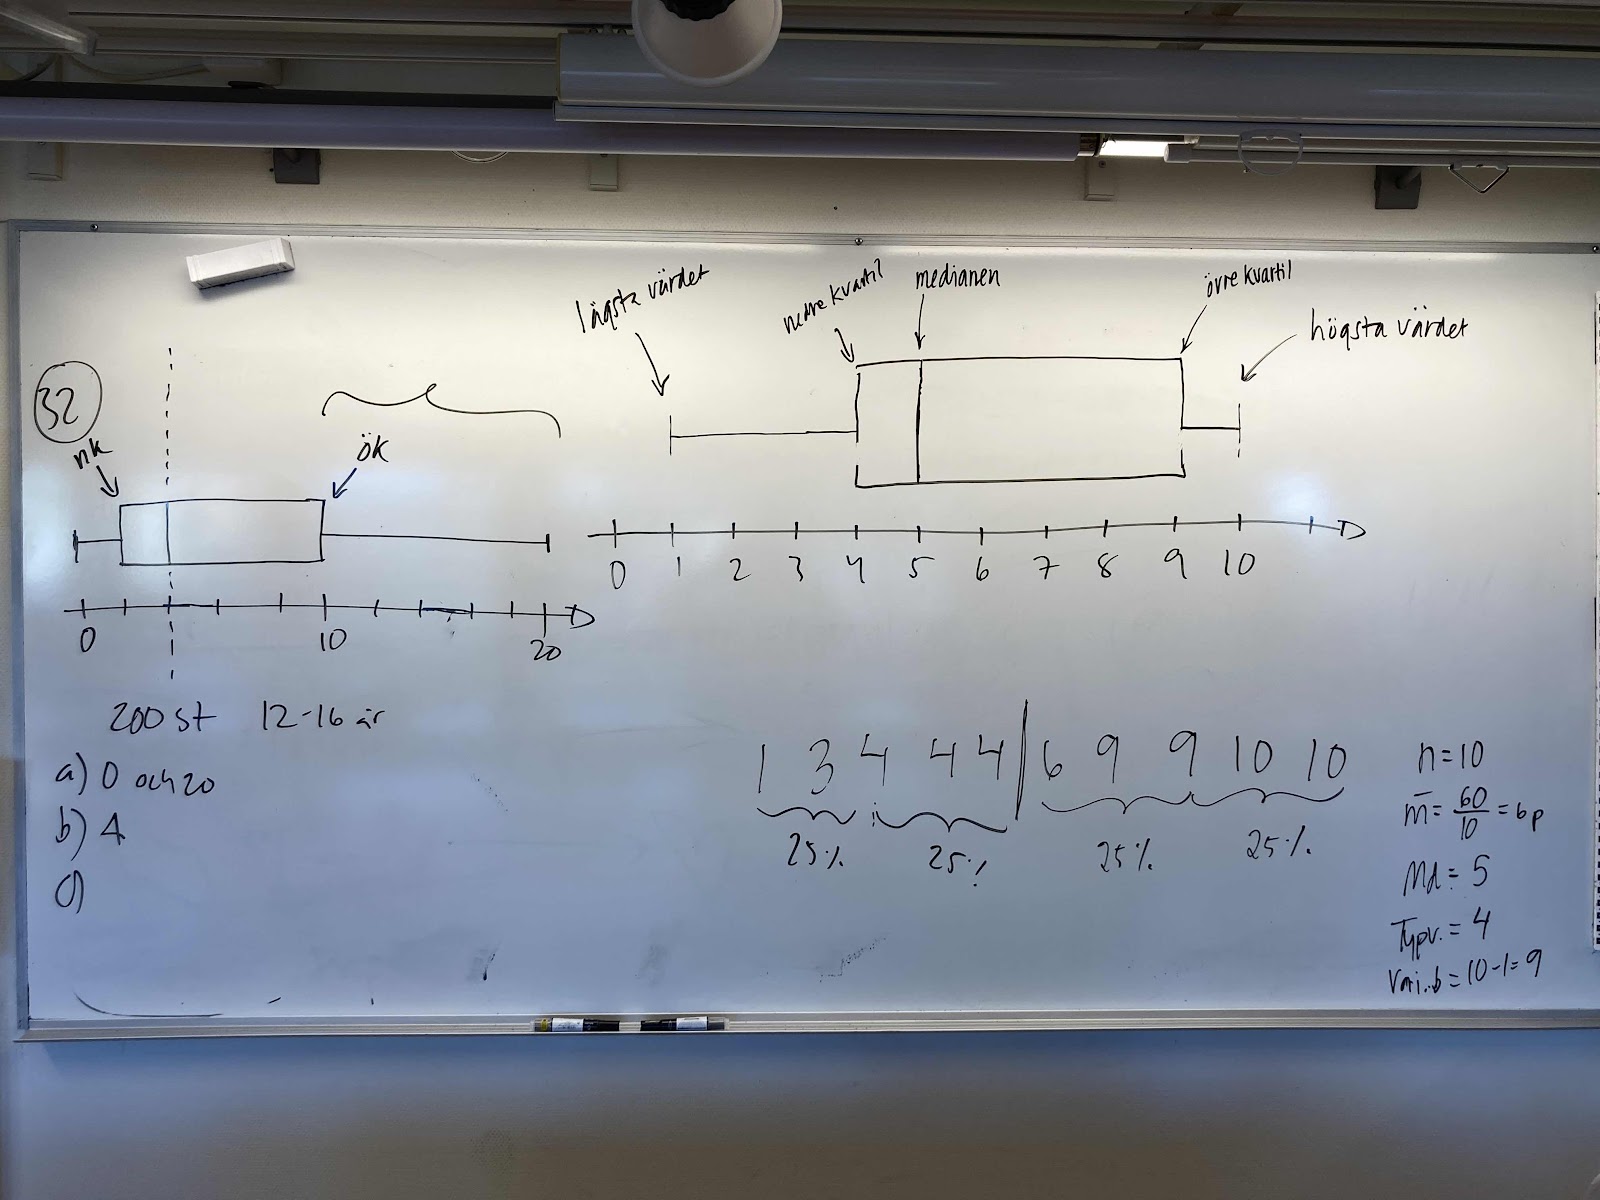 32
nk
ök
0 10 20
200 st 12-16 år
a) 0 och 20
b) 4
c)
lägsta värdet
nedre kvartil
medianen
övre kvartil
högsta värdet
0 1 2 3 4 5 6 7 8 9 10
1 3 4 4 4 | 6 9 9 10 10
25% 25% 25% 25%
n=10
m̄= 60/10 = 6p
Md= 5
Typv.= 4
Vari.b = 10-1=9